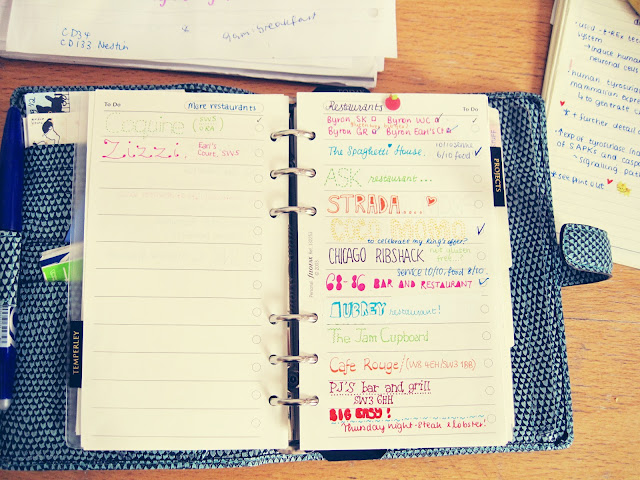 CD34
CD133 Nestin
&
9am - breakfast
To Do
More restaurants
Coquine
Zizzi. Earl's
Court, SW5
TEMPERLEY
To Do
Restaurants
Byron SK Byron WC
Byron GR Byron Earl's Ct
The Spaghetti House.
6/10 food
ASK restaurant...
STRADA....
COCO MOMO
to celebrate my king's offer?
CHICAGO RIBSHACK
service 10/10, food 8/10.
68-86 BAR AND RESTAURANT
AUBREY restaurant!
The Jam Cupboard
Cafe Rouge/(W8 4EH/SW3 1RB)
PJ'S bar and grill
SW3 6HH
BIG EASY!
Thursday night - steak & lobster!
PROJECTS
system
induce human
neuronal cell
human tyrosinase
mammalian
to generate
+ further detail
exp of tyrosinase
of SAPKs and caspase
signalling path